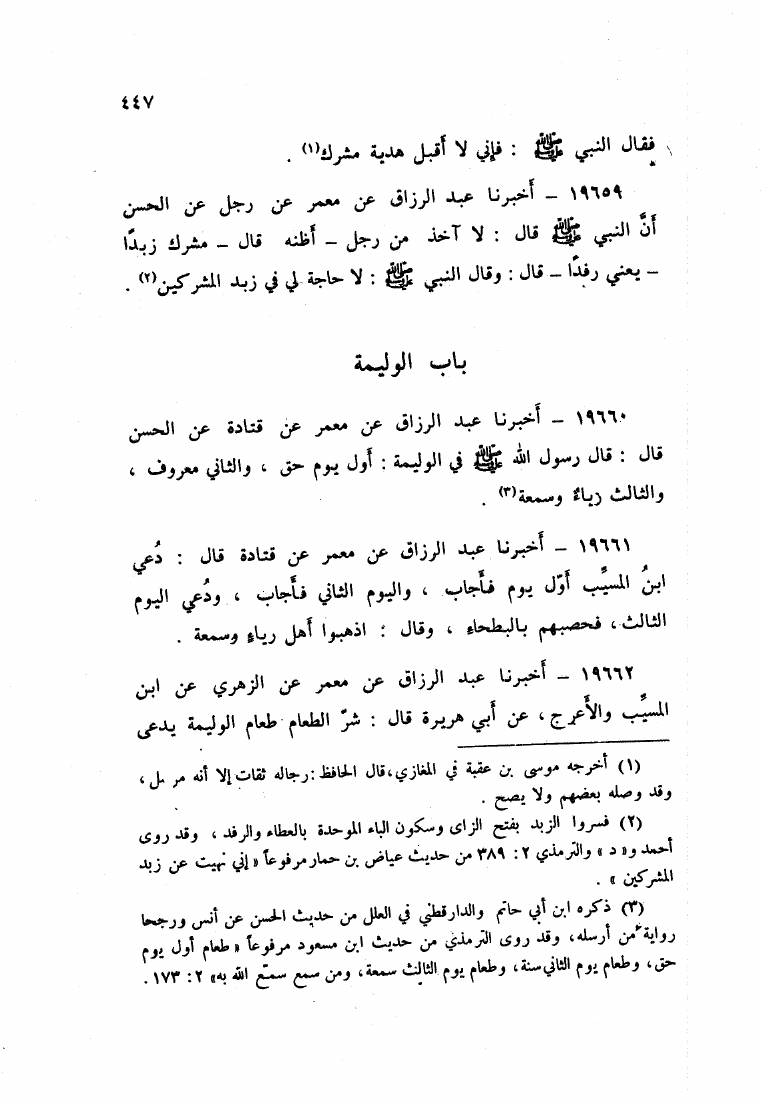 ٤٤٧
فقال النبي ﷺ : فإني لا أقبل هدية مشرك(١) .
١٩٦٥٩ – أخبرنا عبد الرزاق عن معمر عن رجل عن الحسن
أنَّ النبي ﷺ قال : لا آخذ من رجل – أظنه قال – مشرك زبدًا
– يعني رفدًا – قال : وقال النبي ﷺ : لا حاجة لي في زبد المشركين(٢) .
باب الوليمة
١٩٦٦٠ – أخبرنا عبد الرزاق عن معمر عن قتادة عن الحسن
قال : قال رسول الله ﷺ في الوليمة : أول يوم حق ، والثاني معروف ،
والثالث رياءٌ وسمعة(٣) .
١٩٦٦١ – أخبرنا عبد الرزاق عن معمر عن قتادة قال : دُعي
ابنُ المسيِّب أوّل يوم فأجاب ، واليوم الثاني فأجاب ، ودُعي اليوم
الثالث ، فحصبهم بالبطحاء ، وقال : اذهبوا أهل رياءٍ وسمعة .
١٩٦٦٢ – أخبرنا عبد الرزاق عن معمر عن الزهري عن ابن
المسيِّب والأعرج ، عن أبي هريرة قال : شرّ الطعام طعام الوليمة يدعى
(١) أخرجه موسى بن عقبة في المغازي ، قال الحافظ : رجاله ثقات إلا أنه مرسل ،
وقد وصله بعضهم ولا يصح .
(٢) فسروا الزبد بفتح الزاى وسكون الباء الموحدة بالعطاء والرفد ، وقد روى
أحمد و« د » والترمذي ٢ : ٣٨٩ من حديث عياض بن حمار مرفوعاً « إني نهيت عن زبد
المشركين » .
(٣) ذكره ابن أبي حاتم والدارقطني في العلل من حديث الحسن عن أنس ورجحا
رواية من أرسله ، وقد روى الترمذي من حديث ابن مسعود مرفوعاً « طعام أول يوم
حق ، وطعام يوم الثاني سنة ، وطعام يوم الثالث سمعة ، ومن سمع سمّع الله به » ٢ : ١٧٣ .